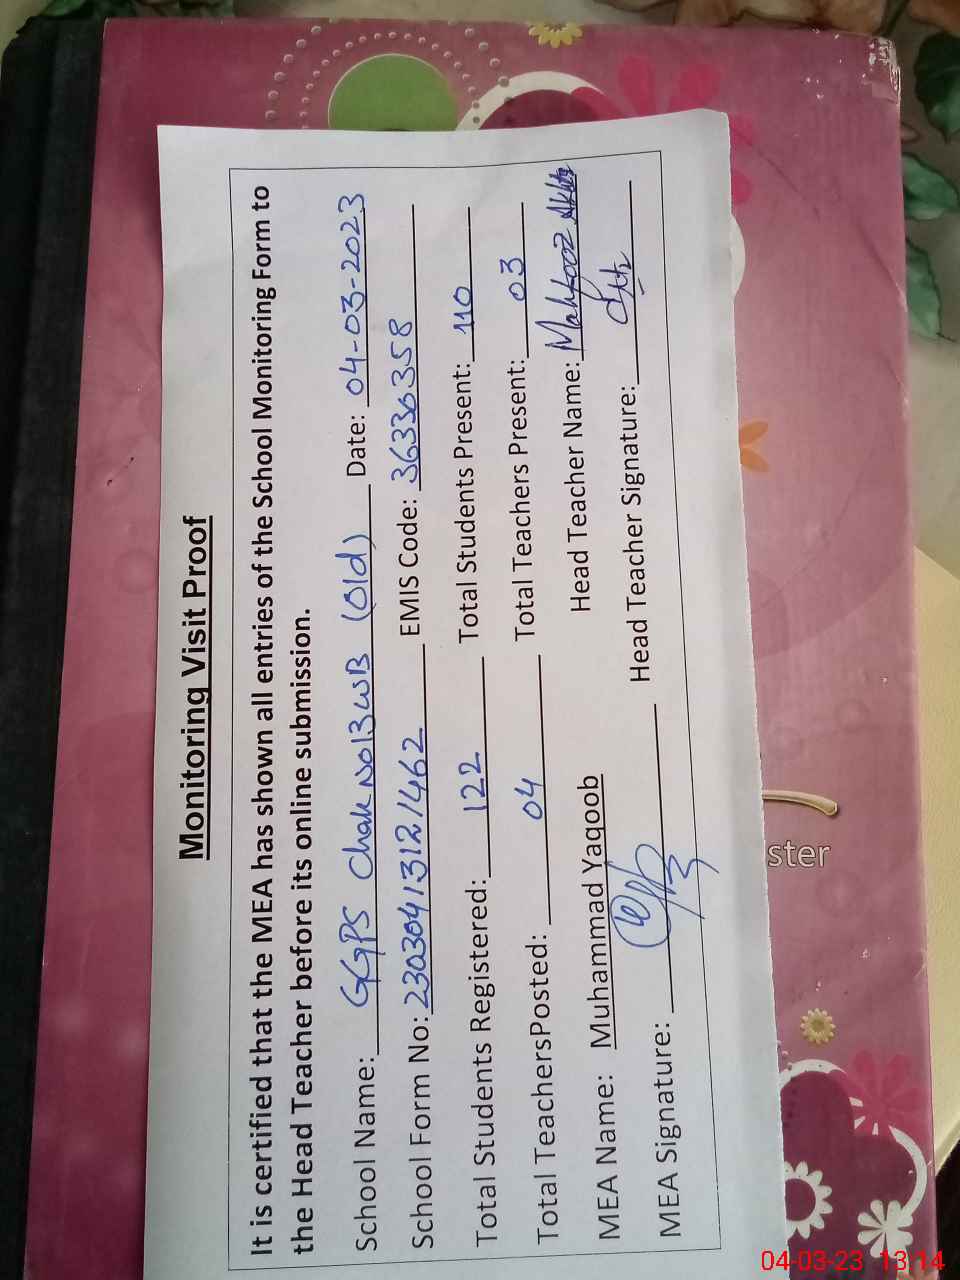 Monitoring Visit Proof
It is certified that the MEA has shown all entries of the School Monitoring Form to
the Head Teacher before its online submission.
School Name: GGPS Chak No 13 WB (Old) Date: 04-03-2023
School Form No: 23030413121462 EMIS Code: 36330358
Total Students Registered: 122 Total Students Present: 110
Total TeachersPosted: 04 Total Teachers Present: 03
MEA Name: Muhammad Yaqoob Head Teacher Name: Mahfooz Akhtr
MEA Signature: Head Teacher Signature:
ster
04-03-23 13:14